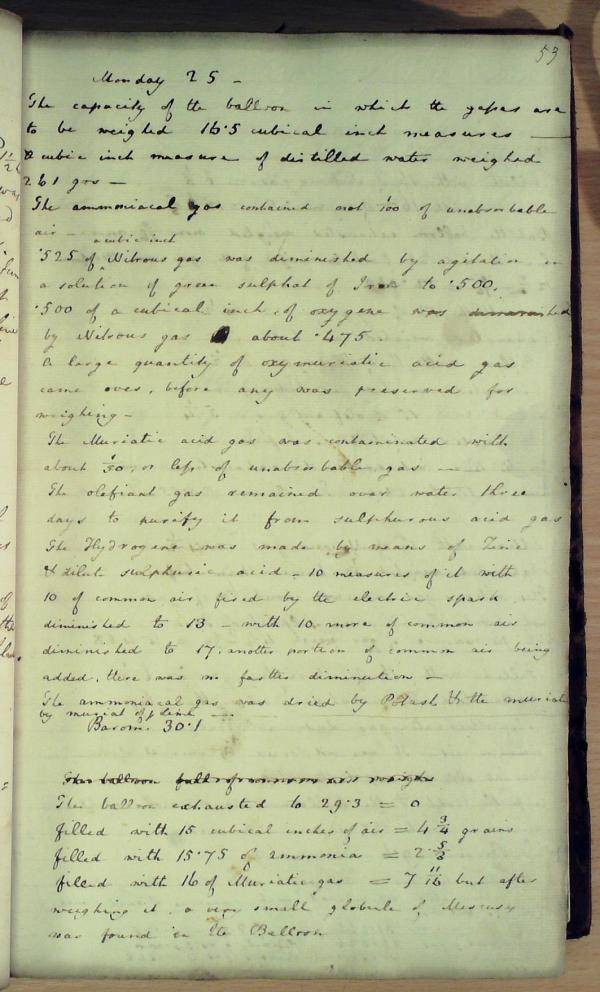 53
Monday 25 -
The capacity of the balloon in which the gases are
to be weighed 16.5 cubical inch measures -
a cubic inch measure of distilled water weighed
261 grs -
The ammoniacal gas contained not 1/100 of unabsorbable
air -
a cubic inch
.525 of Nitrous gas was diminished by agitation in
a solution of green sulphat of Iron to .500.
.500 of a cubical inch of oxygene was diminished
by Nitrous gas about .475.
A large quantity of oxymuriatic acid gas
came over, before any was preserved for
weighing -
The Muriatic acid gas was contaminated with
about 1/50, or less of unabsorbable gas -
The olefiant gas remained over water three
days to purify it from sulphurous acid gas
The Hydrogene was made by means of Zinc
& dilute sulphuric acid - 10 measures of it with
10 of common air fired by the electric spark
diminished to 13 - with 10 more of common air
diminished to 17. another portion of common air being
added, there was no farther diminution -
The ammoniacal gas was dried by Potash & the muriatic
by muriat of Lime -
Barom. 30.1
The balloon full of common air weighs
The balloon exhausted to 29.3 = 0
filled with 15 cubical inches of air = 4 3/4 grains
filled with 15.75 of ammonia = 2 5/8
filled with 16 of Muriatic gas = 7 11/16 but after
weighing it, a very small globule of Mercury
was found in the Balloon